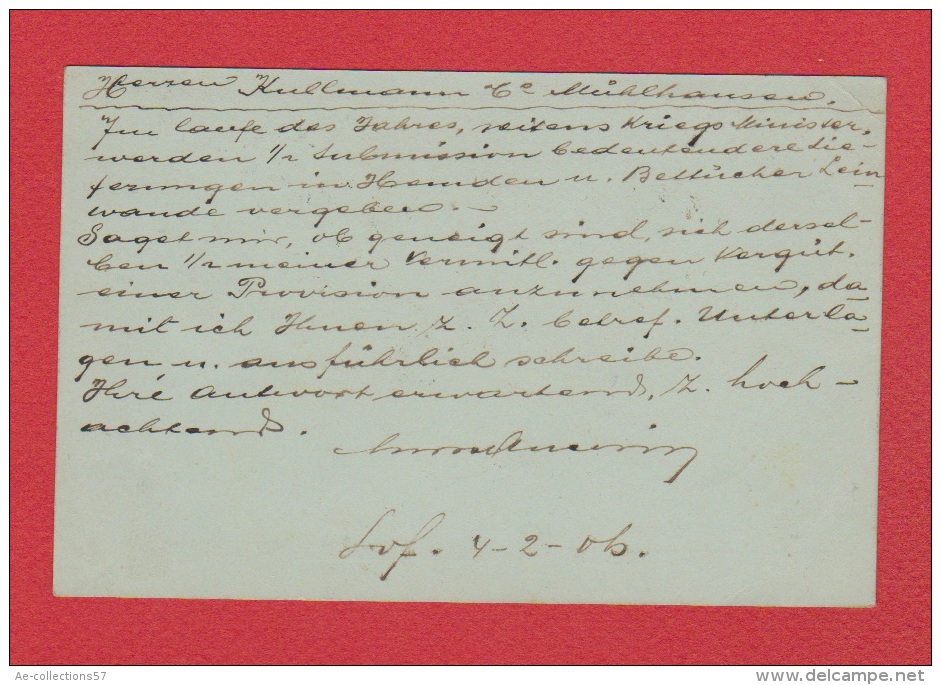 Herren Kullmann & Co Mühlhausen.
Im laufe des Jahres, seitens Kriegs Minister,
werden 1/2 Submission bedeutendere Lie-
ferungen in Hemden u. Bettücher Lein-
wande vergeben. -
Saget mir, ob geneigt sind, sich dersel-
ben 1/2 meiner Vermitl. gegen Vergüt.
einer Provision anzunehmen, da
mit ich Ihnen z. Z. betref. Unterla-
gen u. ausführlich schreibe.
Ihre Antwort erwartend, z. hoch-
achtend.
Sof. 4-2-06.
Ae-collections57
delcampe.net